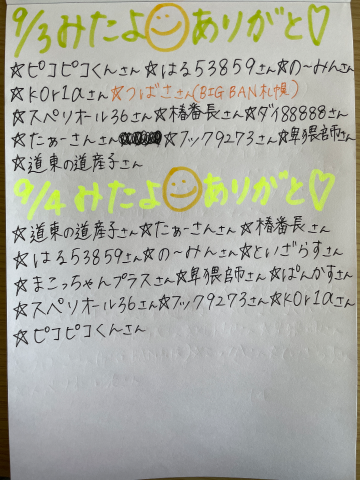 9/3みたよ ありがと♡
☆ピコピコくんさん ☆はる53859さん ☆の〜みんさん
☆k0r1aさん ☆つばささん(BIG BAN 札幌)
☆スペリオール36さん ☆椿番長さん ☆ダイ88888さん
☆たぁーさんさん ☆フック9273さん ☆卑猥宿市さん
☆道東の道産子さん
9/4 みたよ ありがと♡
☆道東の道産子さん ☆たぁーさんさん ☆椿番長さん
☆はる53859さん ☆の〜みんさん ☆といざらすさん
☆まこっちゃんプラスさん ☆卑猥宿市さん ☆ぱんかずさん
☆スペリオール36さん ☆フック9273さん ☆k0r1aさん
☆ピコピコくんさん